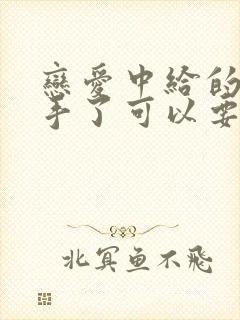 戀愛中給的
手了可以要
北冥鱼不飛